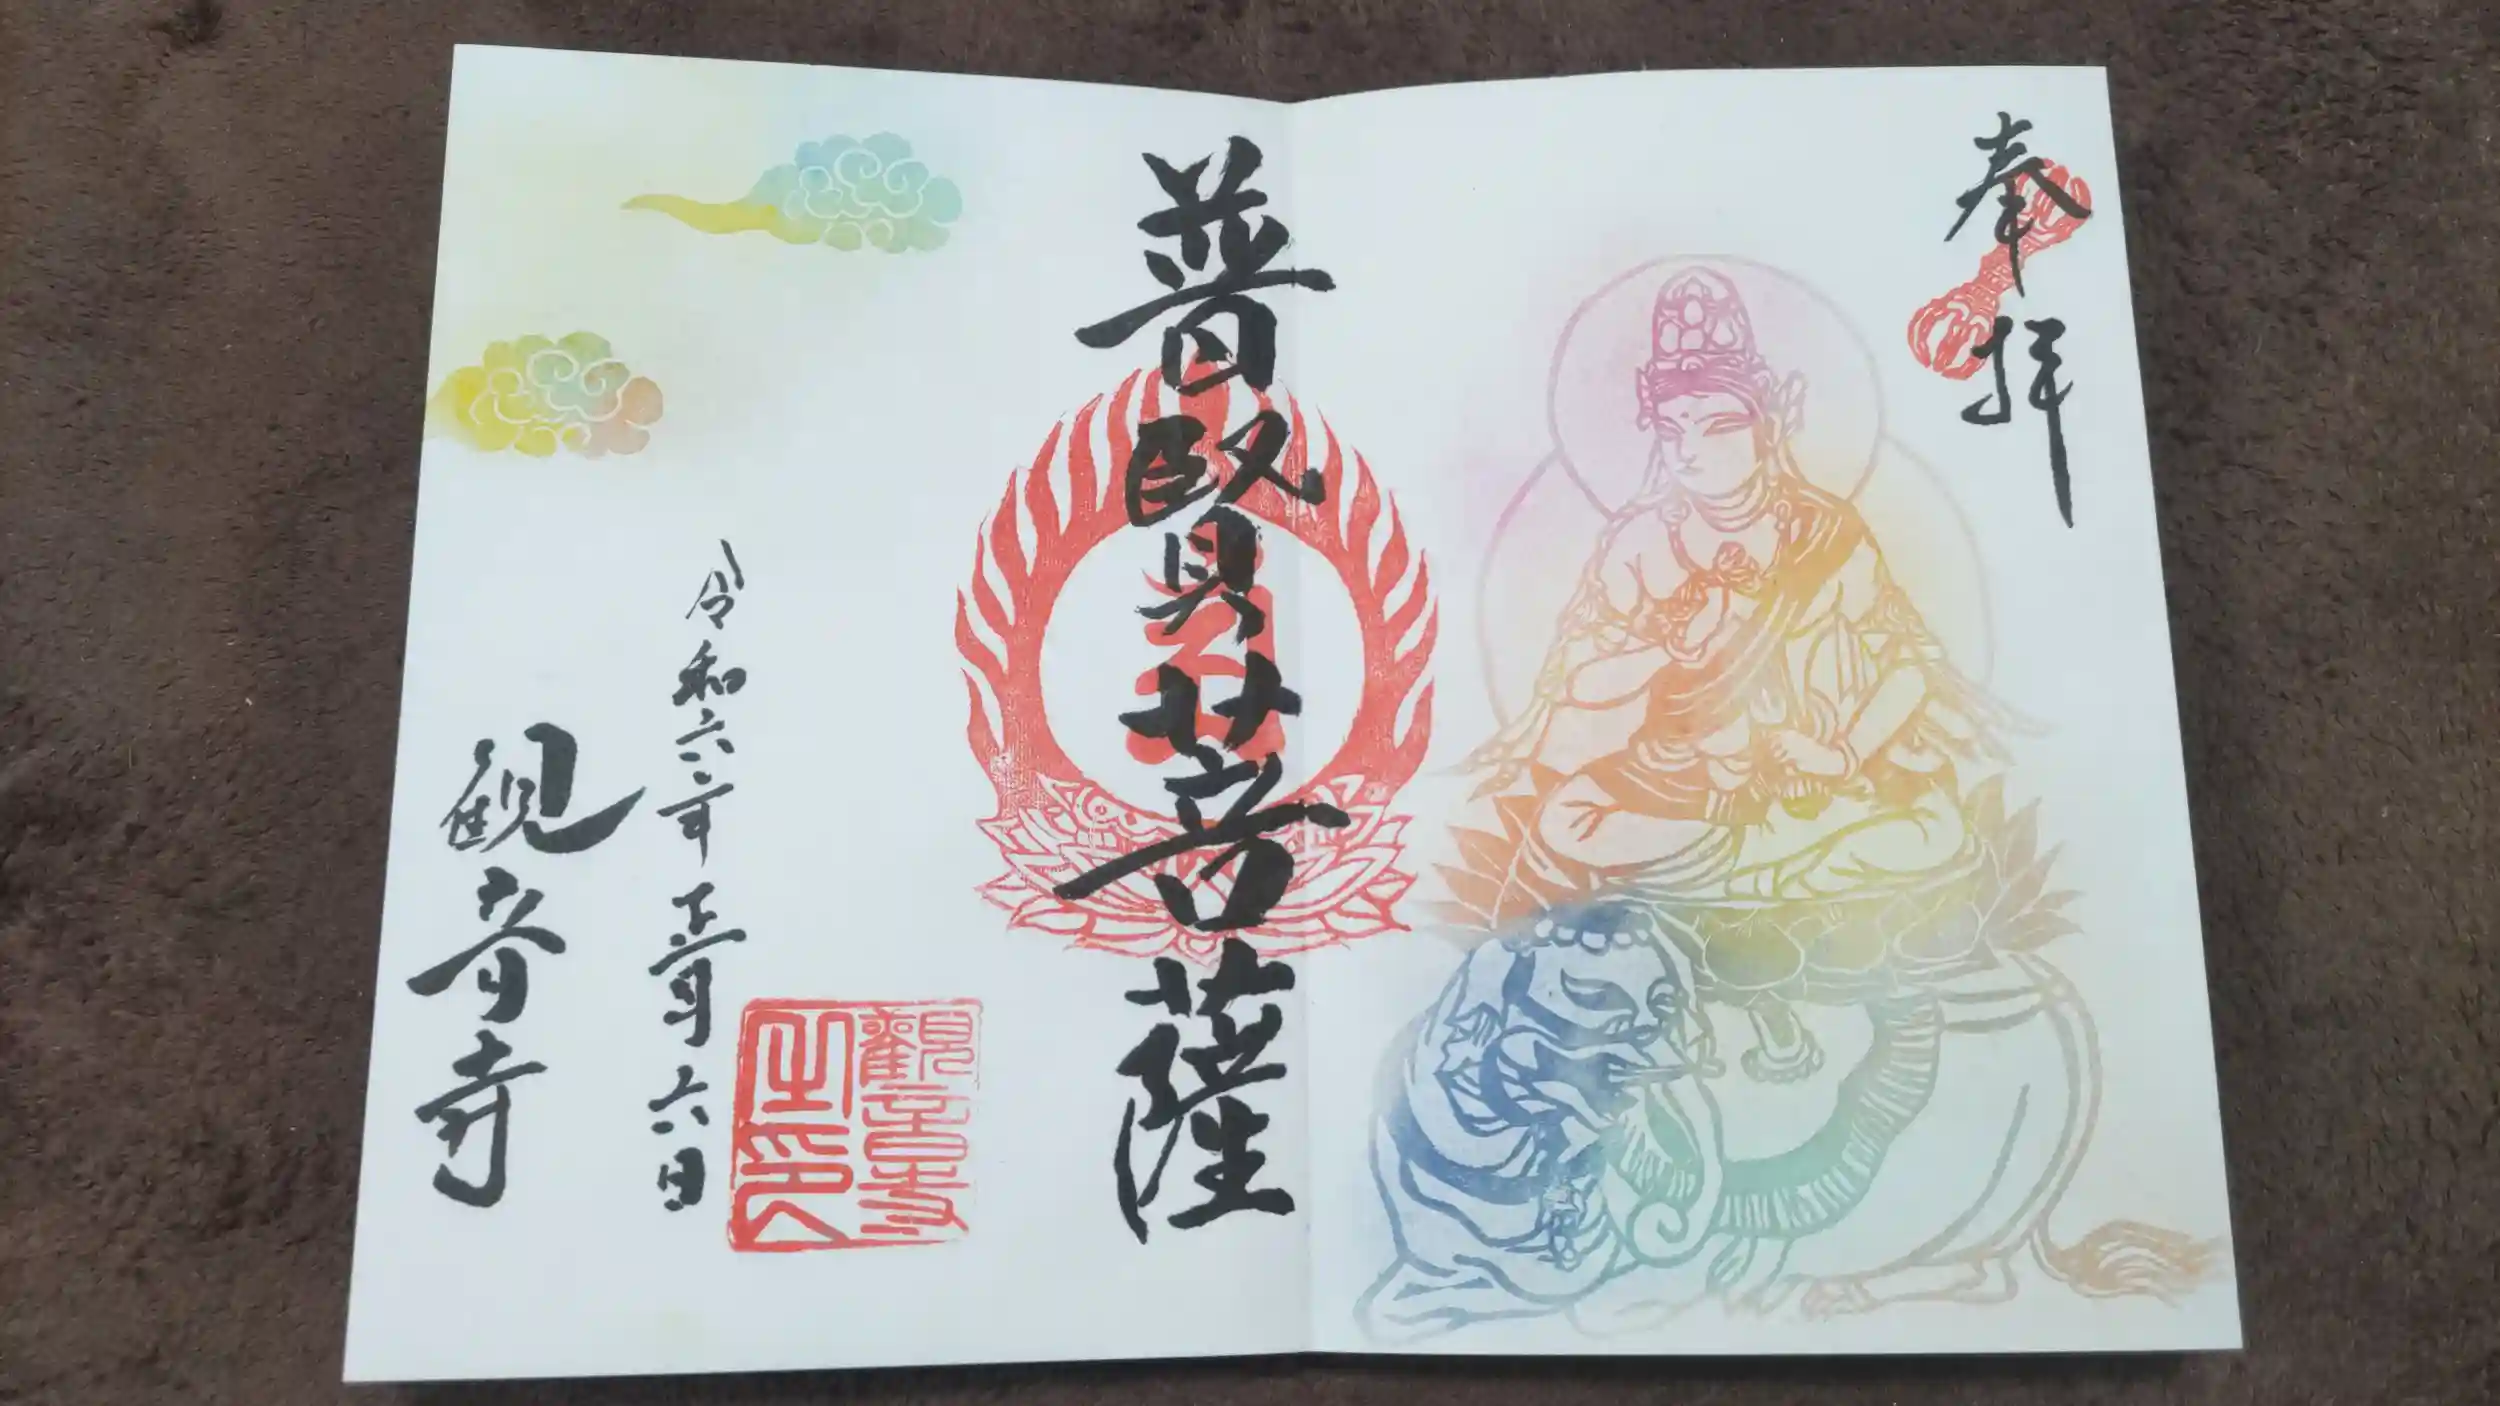 奉拝
普賢菩薩
觀音寺
之印
令和六年 六日
観音寺